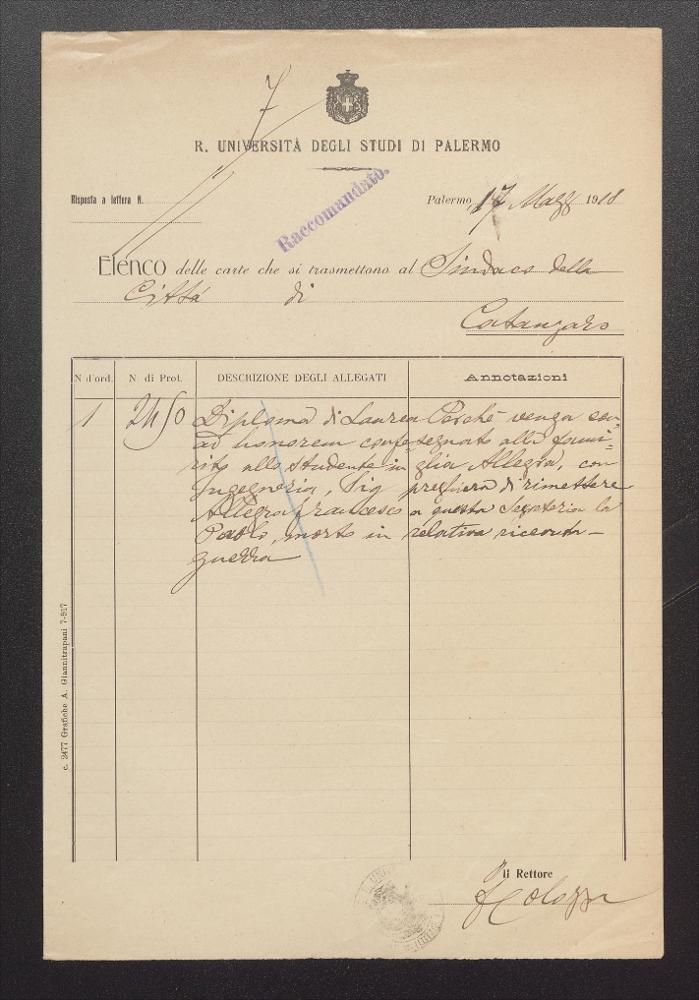 7
R. UNIVERSITÀ DEGLI STUDI DI PALERMO
Risposta a lettera N.
Raccomandato.
Palermo, 17 Magg 1918
ELENCO delle carte che si trasmettono al Sindaco della
Città di
Catanzaro
N d'ord. N di Prot. DESCRIZIONE DEGLI ALLEGATI Annotazioni
1 2450 Diploma di Laurea Perchè venga con=
ad honorem confe segnato alla fami=
rito allo studente in glia Allegra, con
Ingegneria, Sig preghiera di rimettere
Allegra Francesco a questa Segreteria la
Paolo, morto in relativa ricevuta
guerra
c. 2477 Grafiche A. Giannitrapani 7-917
Il Rettore